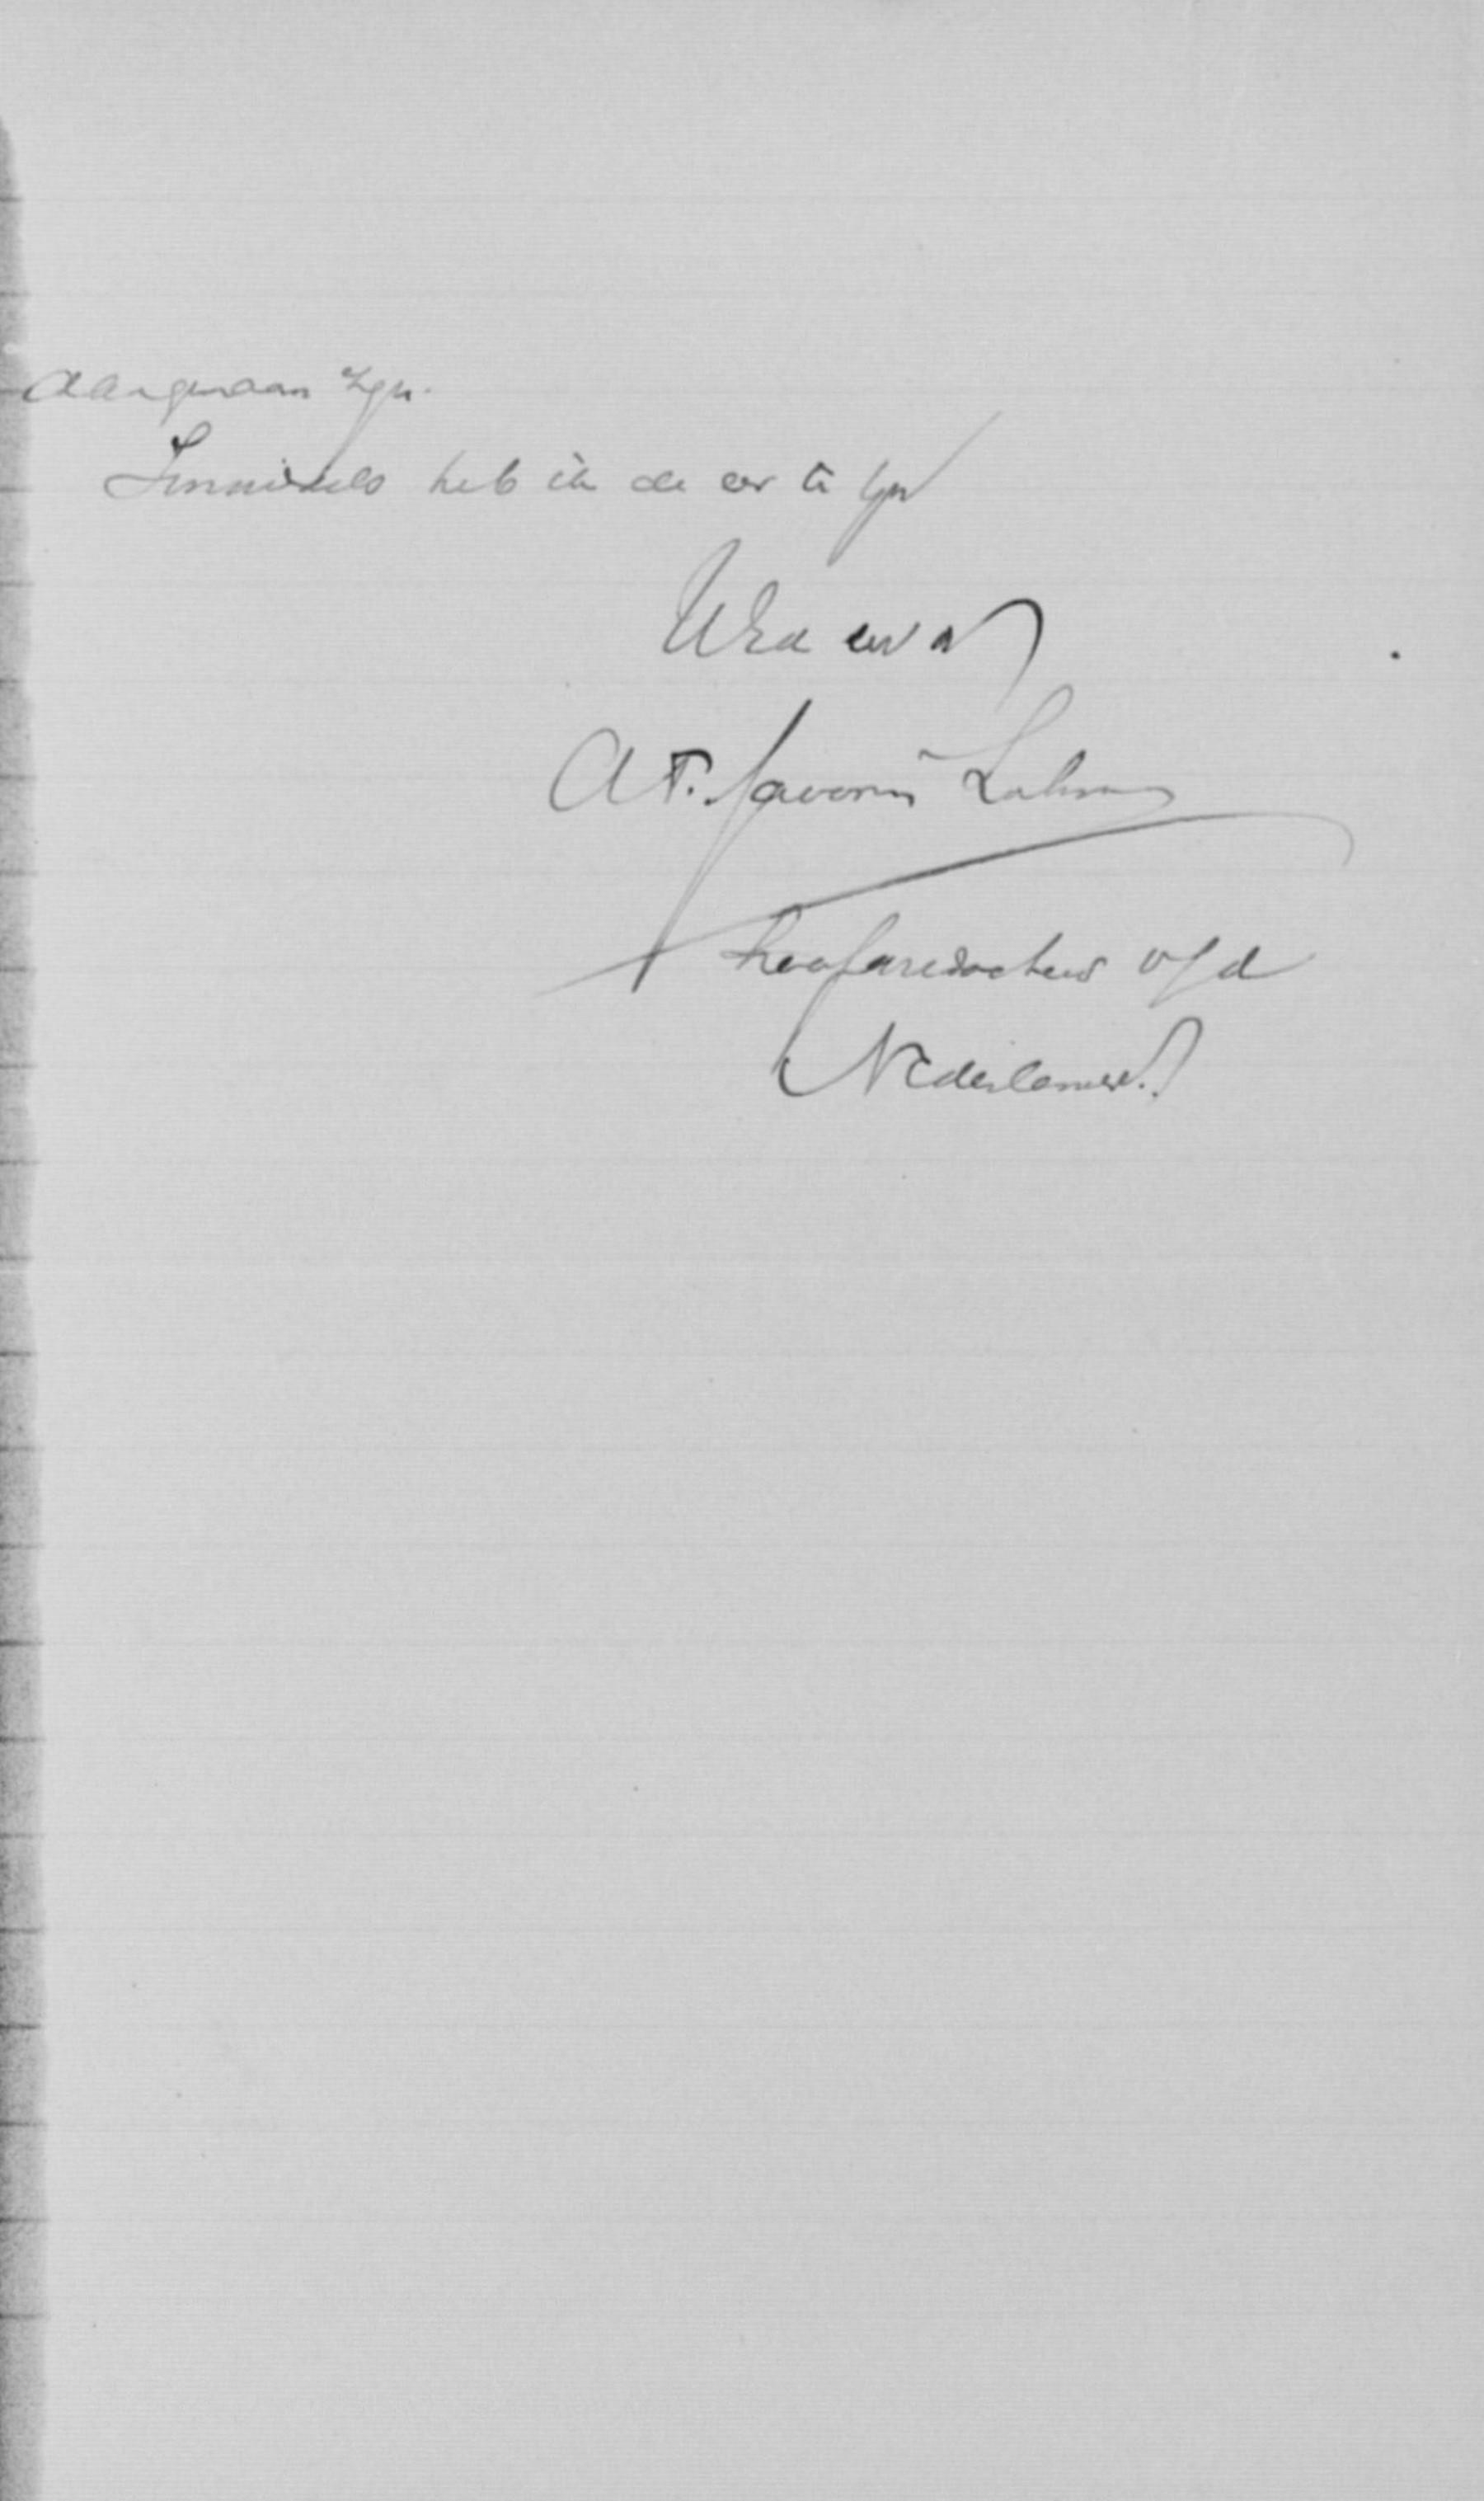 aangenaam zijn.
Inmiddels heb ik de eer te zijn
UEd dw dr
A F. de Savornin Lohman
hoofdredacteur v/d
Nederlander.